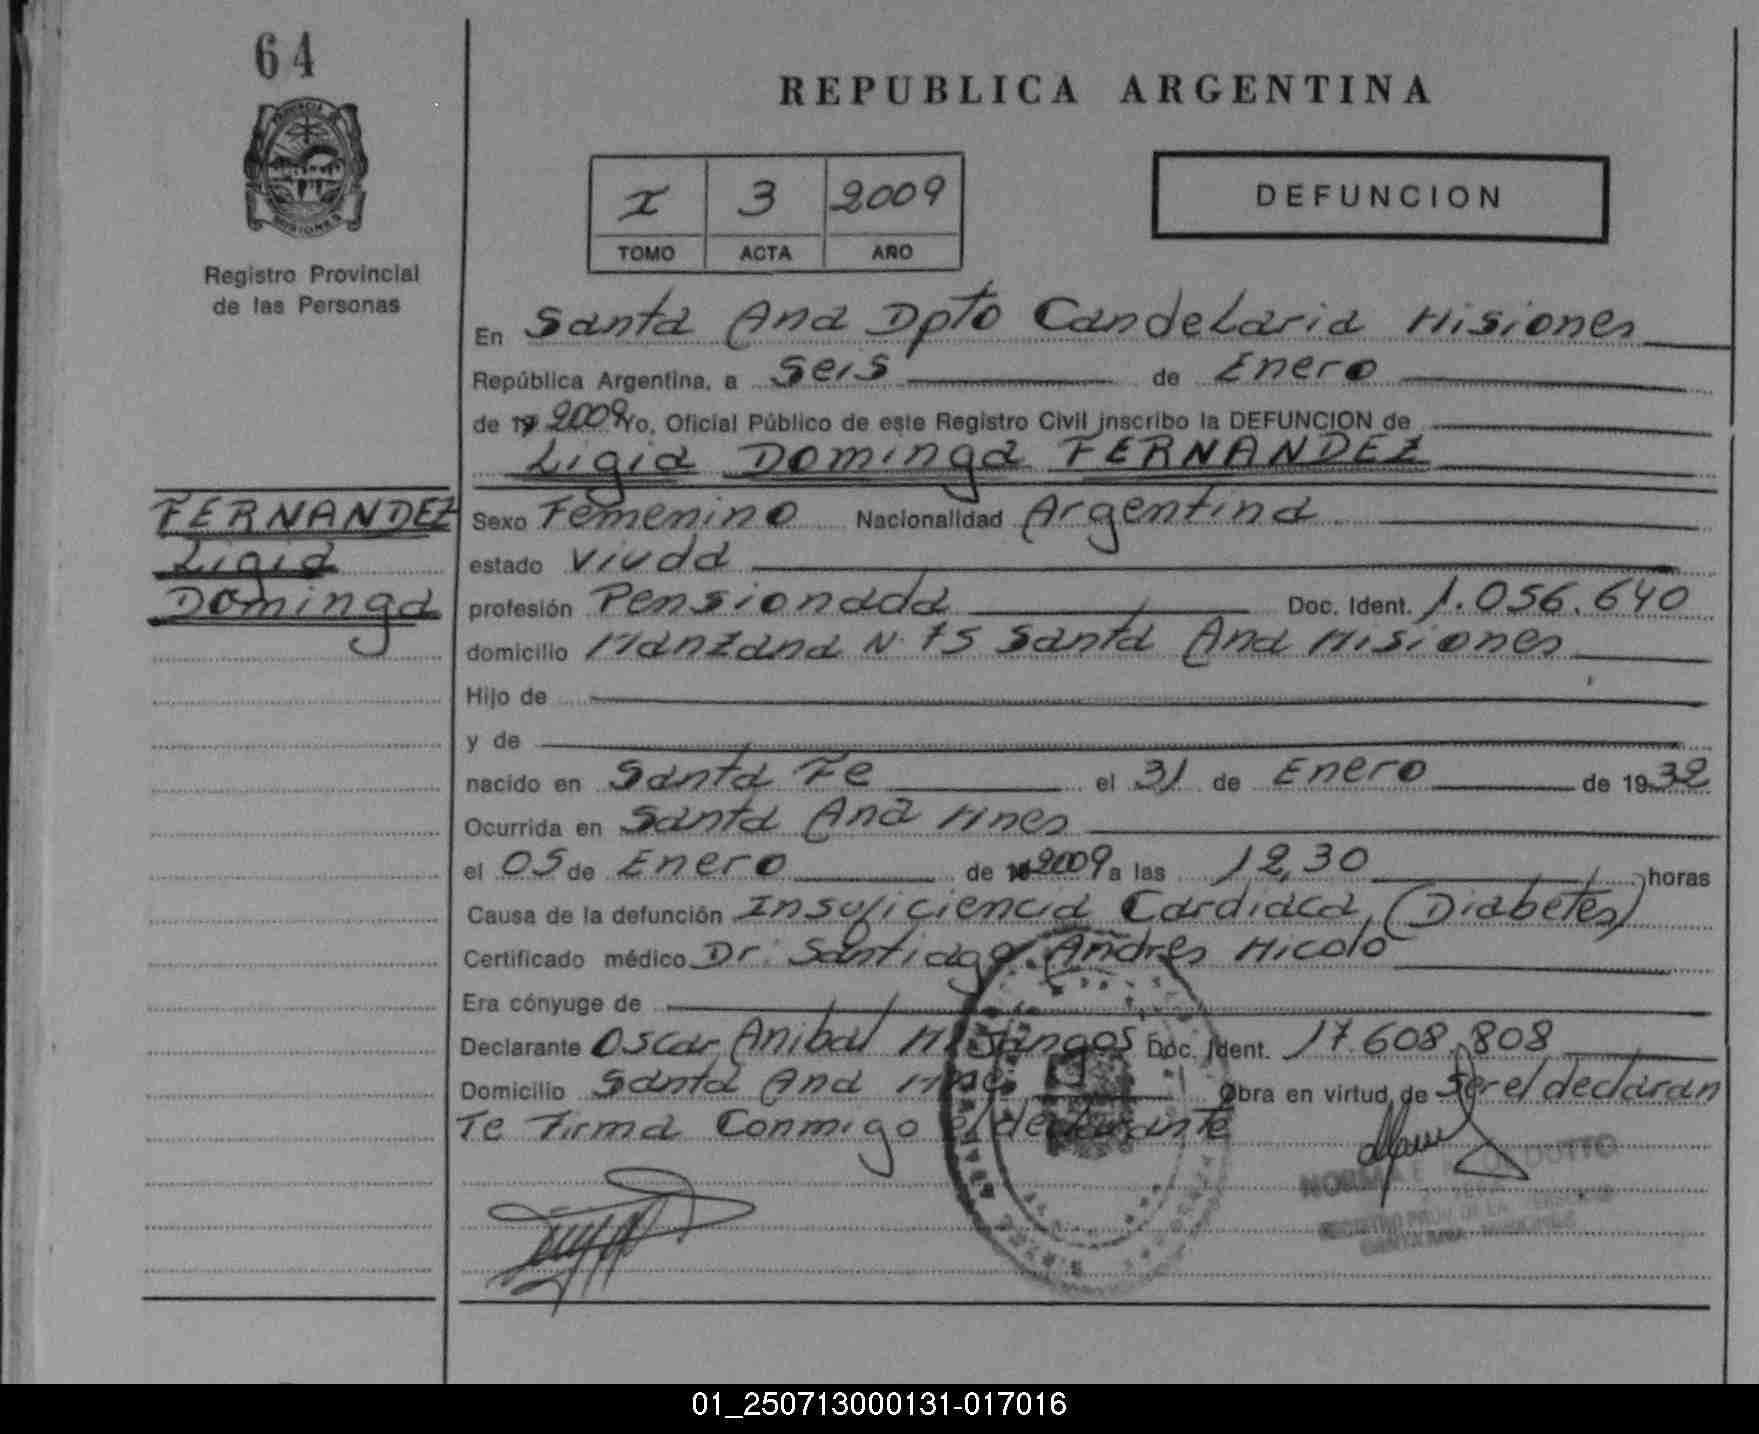 64
REPUBLICA ARGENTINA
I 3 2009
TOMO ACTA AÑO
DEFUNCION
Registro Provincial
de las Personas
En Santa Ana Dpto Candelaria Misiones
República Argentina, a Seis de Enero
de 19 2009 Yo, Oficial Público de este Registro Civil inscribo la DEFUNCION de
Ligia Dominga FERNANDEZ
FERNANDEZ
Ligia
Dominga
Sexo Femenino Nacionalidad Argentina
estado Viuda
profesión Pensionada Doc. Ident. 1.056.640
domicilio Manzana N 75 Santa Ana Misiones
Hijo de
y de
nacido en Santa Fe el 31 de Enero de 1932
Ocurrida en Santa Ana Mnes
el 05 de Enero de 2009 a las 12,30 horas
Causa de la defunción Insuficiencia Cardiaca, (Diabetes)
Certificado médico Dr. Santiago Andres Nicolo
Era cónyuge de
Declarante Oscar Anibal Doc. Ident. 17.608.808
Domicilio Santa Ana Obra en virtud de Ser el declaran
Te Firma Conmigo el declarante
01_250713000131-017016